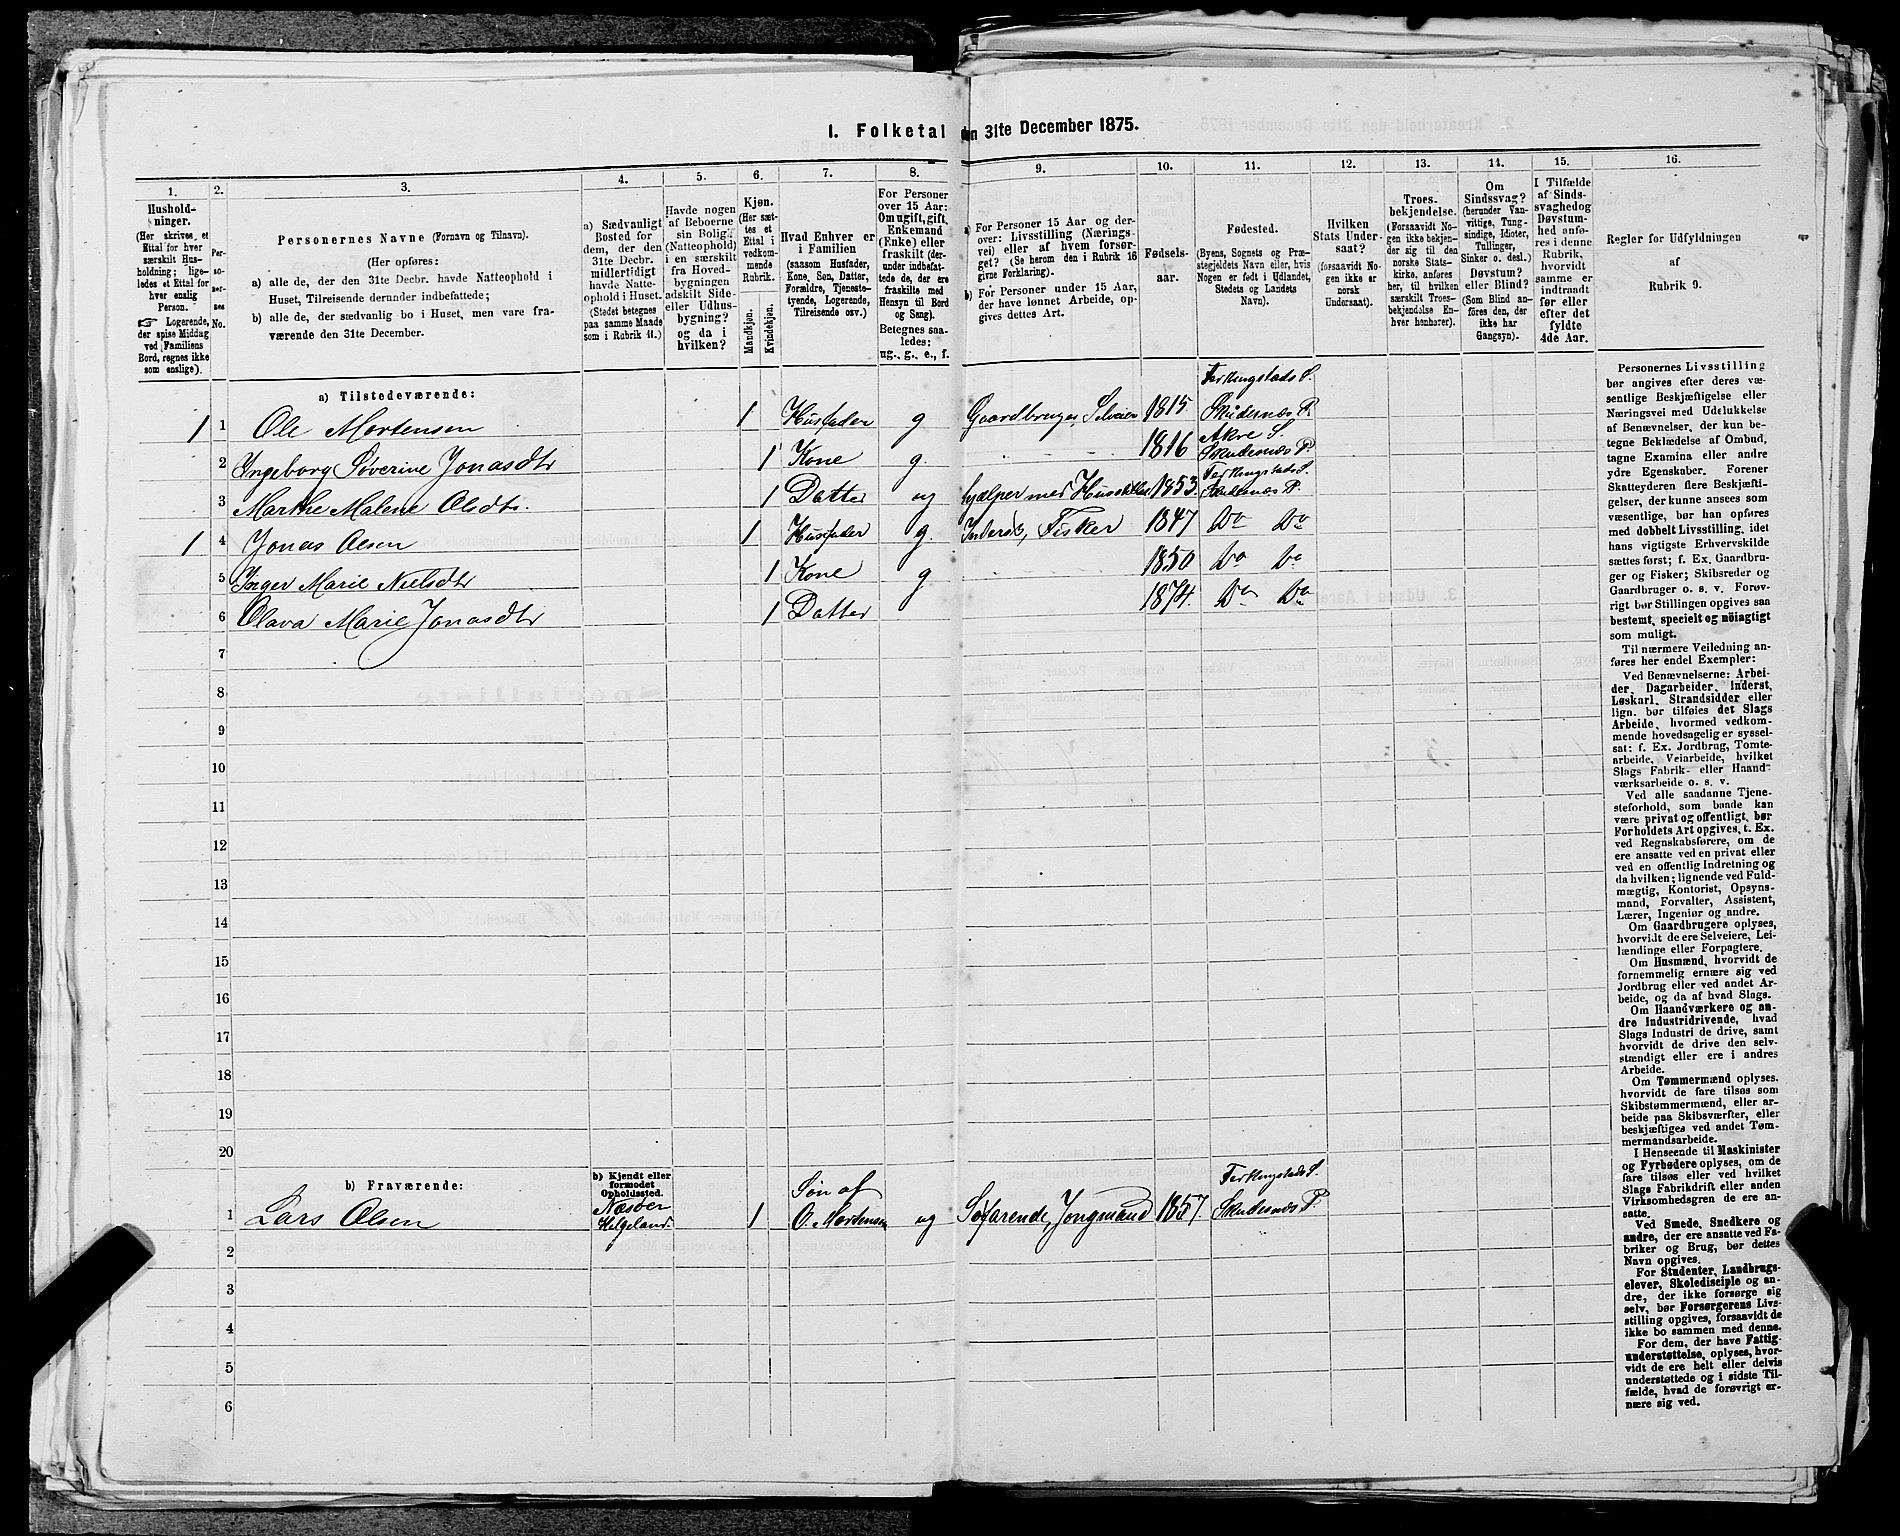 1. Folketal den 31te December 1875.
1. 2. 3. 4. 5. 6. 7. 8. 9. 10. 11. 12. 13. 14. 15. 16.
Hushold-
ninger.
(Her skrives et
Ettal for hver
særskilt Hus-
holdning; lige-
ledes et Ettal for
hver enslig
Person.
☞ Logerende,
der spise Middag
ved Familiens
Bord, regnes ikke
som enslige).
Per-
so-
ner-
nes
No.
Personernes Navne (Fornavn og Tilnavn).
(Her opføres:
a) alle de, der den 31te Decbr. havde Natteophold i
Huset, Tilreisende derunder indbefattede;
b) alle de, der sædvanlig bo i Huset, men vare fra-
værende den 31te December.
a) Sædvanligt
Bosted for
dem, der den
31te Decbr.
midlertidigt
havde Natte-
ophold i Huset.
(Stedet betegnes
paa samme Maade
som i Rubrik 11.)
Havde nogen
af Beboerne
sin Bolig
(Natteophold)
i en særskilt
fra Hoved-
bygningen
adskilt Side-
eller Udhus-
bygning?
og da i
hvilken?
Kjøn.
(Her sæt-
tes et
Ettal i
vedkom-
mende
Rubrik.
Mandkjøn.
Kvindekjøn.
Hvad Enhver er
i Familien
(saasom Husfader,
Kone, Søn, Datter,
Forældre, Tjeneste-
tyende, Logerende,
Tilreisende osv.)
For Personer
over 15 Aar:
Om ugift, gift,
Enkemand
(Enke) eller
fraskilt (der-
under indbefat-
tede de, der ere
fraskilte med
Hensyn til Bord
og Seng).
Betegnes saa-
ledes:
ug., g., e., f.
a) For Personer 15 Aar og der-
over: Livsstilling (Nærings-
vei) eller af hvem forsør-
get? (Se herom den i Rubrik 16
givne Forklaring).
b) For Personer under 15 Aar,
der have lønnet Arbeide, op-
gives dettes Art.
Fødsels-
aar.
Fødested.
(Byens, Sognets og Præ-
stegjeldets Navn eller, hvis
Nogen er født i Udlandet,
Stedets og Landets
Navn).
Hvilken
Stats Under-
saat?
(forsaavidt No-
gen ikke er
norsk
Undersaat).
Troes-
bekjendelse.
(Forsaavidt No-
gen ikke bekjen-
der sig til den
norske Stats-
kirke, anføres
her, til hvilken
særskilt Troes-
bekjendelse En-
hver henhører).
Om
Sindssvag?
(herunder Van-
vittige, Tung-
sindige, Idioter,
Tullinger,
Sinker o. desl.)
Døvstum?
eller Blind?
(Som Blind an-
føres den, der
ikke har
Gangsyn).
I Tilfælde
af Sinds-
svaghed og
Døvstum-
hed anfø-
res i denne
Rubrik,
hvorvidt
samme er
indtraadt
før eller
efter det
fyldte
4de Aar.
Regler for Udfyldningen
af
Rubrik 9.
a) Tilstedeværende:
1 1 Ole Mortensen 1 Husfader g Gaardbruger, Selveier 1815 Ferkingstads S. Skudesnæs P.
2 Ingeborg Søverine Jonasdtr 1 Kone g. 1816 Akre S. Skudesnæs P.
3 Marthe Malene Olsdtr. 1 Datter ug hjælper med Husstellet 1853. Ferkingstads S. Skudesnæs P.
1 4 Jonas Olsen 1 Husfader g. Inderst, Fisker 1847 Do Do
5 Inger Marie Nielsdtr 1 Kone g 1850 Do Do
6 Olava Marie Jonasdtr 1 Datter 1874. Do Do
7
8
9
10
11
12
13
14
15
16
17
18
19
20
b) Fraværende:
b) Kjendt eller
formodet
Opholdssted.
1 Lars Olsen Næsøer Helgeland. 1 Søn af O. Mortensen ug Søfarende, Jongmand 1857 Ferkingstads S. Skudesnæs P.
2
3
4
5
6
Personernes Livsstilling
bør angives efter deres væ-
sentlige Beskjæftigelse eller
Næringsvei med Udelukkelse
af Benævnelser, der kun be-
tegne Beklædelse af Ombud,
tagne Examina eller andre
ydre Egenskaber. Forener
Skatteyderen flere Beskjæfti-
gelser, der kunne ansees som
væsentlige, bør han opføres
med dobbelt Livsstilling, idet
hans vigtigste Erhvervskilde
sættes først; f. Ex. Gaardbru-
ger og Fisker; Skibsreder og
Gaardbruger o. s. v. Forøv-
rigt bør Stillingen opgives saa
bestemt, specielt og nöiagtigt
som muligt.
Til nærmere Veiledning an-
føres her endel Exempler:
Ved Benævnelserne: Arbei-
der, Dagarbeider, Inderst,
Løskarl, Strandsidder eller
lign. bør tilføies det Slags
Arbeide, hvormed vedkom-
mende hovedsagelig er syssel-
sat: f. Ex. Jordbrug, Tomte-
arbeide, Veiarbeide, hvilket
Slags Fabrik- eller Haand-
værksarbeide o. s. v.
Ved alle saadanne Tjene-
steforhold, som baade kan
være privat og offentligt, bør
Forholdets Art opgives, t. Ex.
ved Regnskabsførere, om de
ere ansatte ved en privat eller
ved en offentlig Indretning og
da hvilken; lignende ved Fuld-
mægtig, Kontorist, Opsyns-
mand, Forvalter, Assistent,
Lærer, Ingeniør og andre.
Om Gaardbrugere oplyses,
hvorvidt de ere Selveiere, Lei-
lændinge eller Forpagtere.
Om Husmænd, hvorvidt de
fornemmelig ernære sig ved
Jordbrug eller ved andet Ar-
beide, og da af hvad Slags.
Om Haandværkere og an-
dre Industridrivende, hvad
Slags Industri de drive, samt
hvorvidt de drive den selv-
stændigt eller ere i andres
Arbeide.
Om Tømmermænd oplyses,
hvorvidt de fare tilsøs som
Skibstømmermænd, eller ar-
beide paa Skibsværfter, eller
beskjæftiges ved andet Tøm-
mermandsarbeide.
I Henseende til Maskinister
og Fyrbødere oplyses, om de
fare tilsøs eller ved hvilket
Slags Fabrikdrift eller anden
Virksomhedsgren de ere an-
satte.
Ved Smede, Snedkere og
andre, der ere ansatte ved Fa-
briker og Brug, bør dettes
Navn opgives.
For Studenter, Landbrugs-
elever, Skoledisciple og an-
dre, der ikke forsørge sig
selv, bør Forsørgerens Livs-
stilling opgives, forsaavidt de
ikke bo sammen med denne.
For dem, der have Fattig-
understøttelse, oplyses, hvor-
vidt de ere helt eller delvis
understøttede og i sidste Til-
fælde, hvad de forøvrigt er-
nære sig ved.